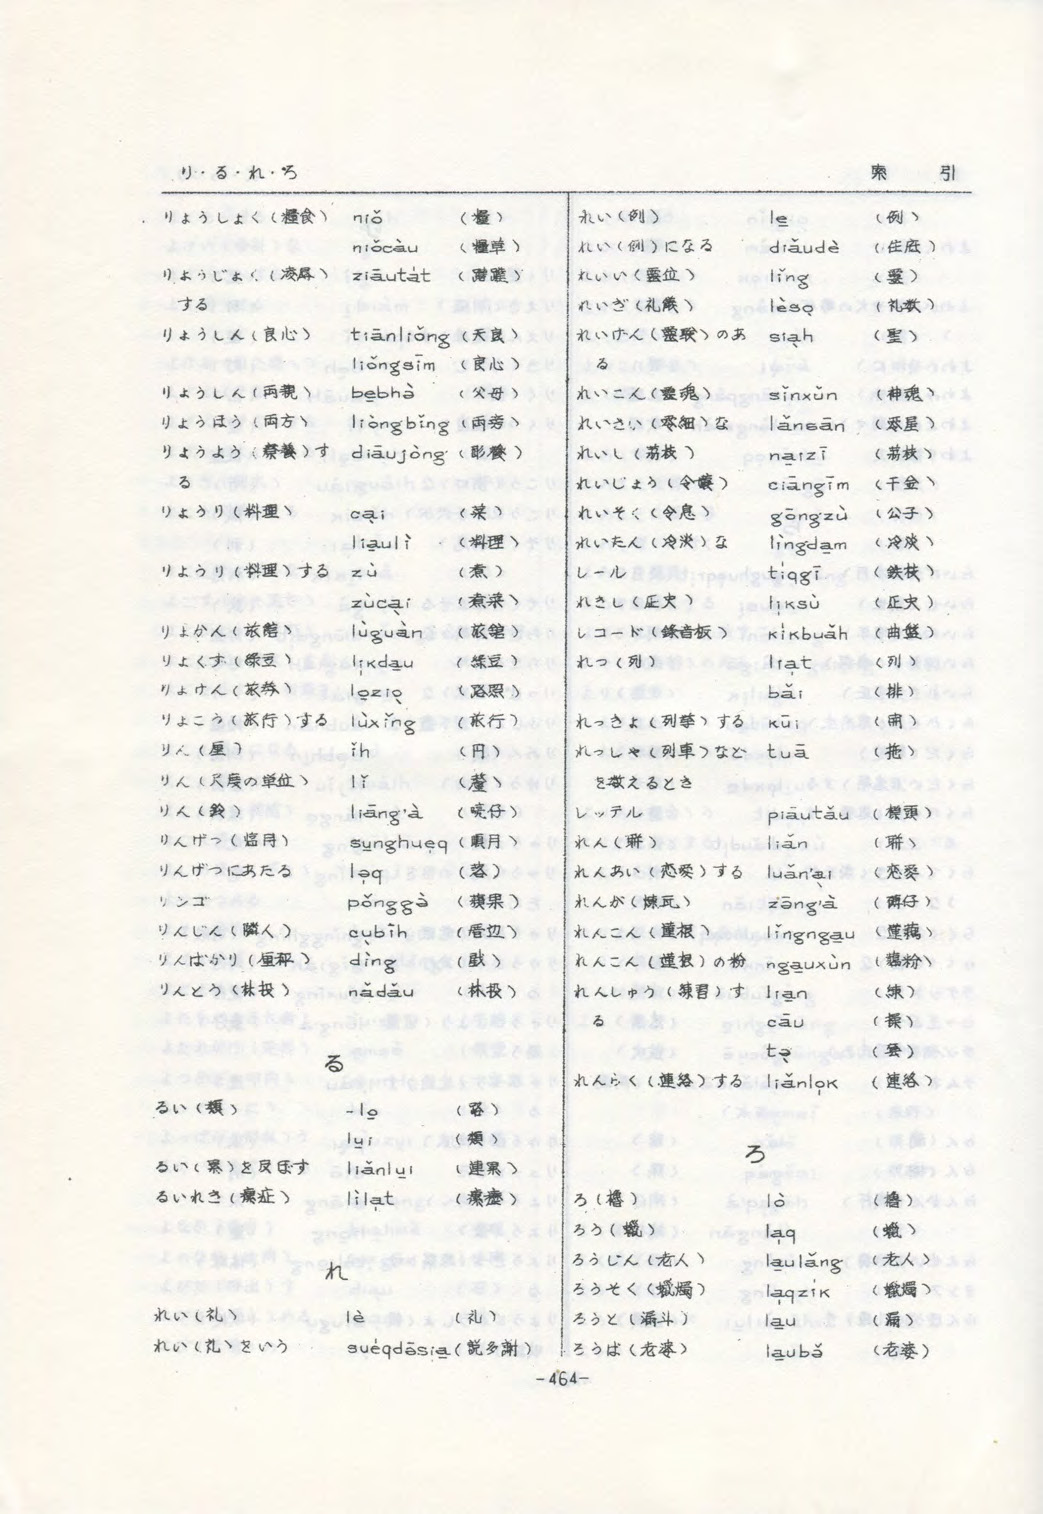 り・る・れ・ろ
索 引
りょうしょく(糧食) niǒ (糧)
niǒcàu (糧草)
りょうじょく(凌辱) ziāutȧt (蹧躂)
する
りょうしん(良心) tiānliǒng (天良)
liǒngsīm (良心)
りょうしん(両親) be̱bhà (父母)
りょうほう(両方) liòngbǐng (両旁)
りょうよう(療養)す diāujòng (彫養)
る
りょうり(料理) cạ̱i (菜)
lia̱ulì (料理)
りょうり(料理)する zù (煮)
zùcạ̱i (煮菜)
りょかん(旅館) lùguàn (旅舘)
りょくず(緑豆) li̩kda̱u (緑豆)
りょけん(旅券) lo̱zio̱̩ (路照)
りょこう(旅行)する lùxíng (旅行)
りん(厘) ǐh (円)
りん(尺度の単位) lǐ (釐)
りん(鈴) liāng'à (喨仔)
りんげつ(臨月) su̱nghue̩q (順月)
りんげつにあたる lə̩q (落)
リンゴ pǒnggà (蘋果)
りんじん(隣人) cu̱̩bīh (厝辺)
りんばかり(厘秤) dìng (戥)
りんとう(林投) nǎdǎu (林投)
る
るい(類) -lo̱ (路)
lu̱i (類)
るい(累)を及ぼす liǎnlu̱i (連累)
るいれき(瘰癧) lìla̩t (瘰癧)
れ
れい(礼) lè (礼)
れい(礼)をいう suėqdāsia̱ (説多謝)
れい(例) le̱ (例)
れい(例)になる diǎudè (住底)
れいい(霊位) lǐng (霊)
れいぎ(礼儀) lèsọ (礼数)
れいげん(霊験)のあ sia̱̩h (聖)
る
れいこん(霊魂) sǐnxǔn (神魂)
れいさい(零細)な lǎnsān (零星)
れいし(荔枝) na̱izī (荔枝)
れいじょう(令嬢) ciāngīm (千金)
れいそく(令息) gōngzù (公子)
れいたん(冷淡)な lìngda̱m (冷淡)
レール tịqgī (鉄枝)
れきし(歴史) li̩ksù (歴史)
レコード(録音板) kịkbuǎh (曲盤)
れつ(列) lia̩t (列)
bǎi (排)
れっきょ(列挙)する kūi (開)
れっしゃ(列車)など tuā (拖)
を数えるとき
レッテル piāutǎu (標頭)
れん(聯) liǎn (聯)
れんあい(恋愛)する luǎn'ạ̱i (恋愛)
れんが(煉瓦) zāng'à (磚仔)
れんこん(蓮根) lǐngnga̱u (蓮藕)
れんこん(蓮根)の粉 nga̱uxùn (藕粉)
れんしゅう(練習)す lia̱n (練)
る cāu (操)
れんらく(連絡)する liǎnlo̩k (連絡)
ろ
ろ(櫓) lò (櫓)
ろう(蠟) la̩q (蠟)
ろうじん(老人) la̱ulǎng (老人)
ろうそく(蠟燭) la̩qzik (蠟燭)
ろうと(漏斗) la̱u (漏)
ろうば(老婆) la̱ubǎ (老婆)
-464-